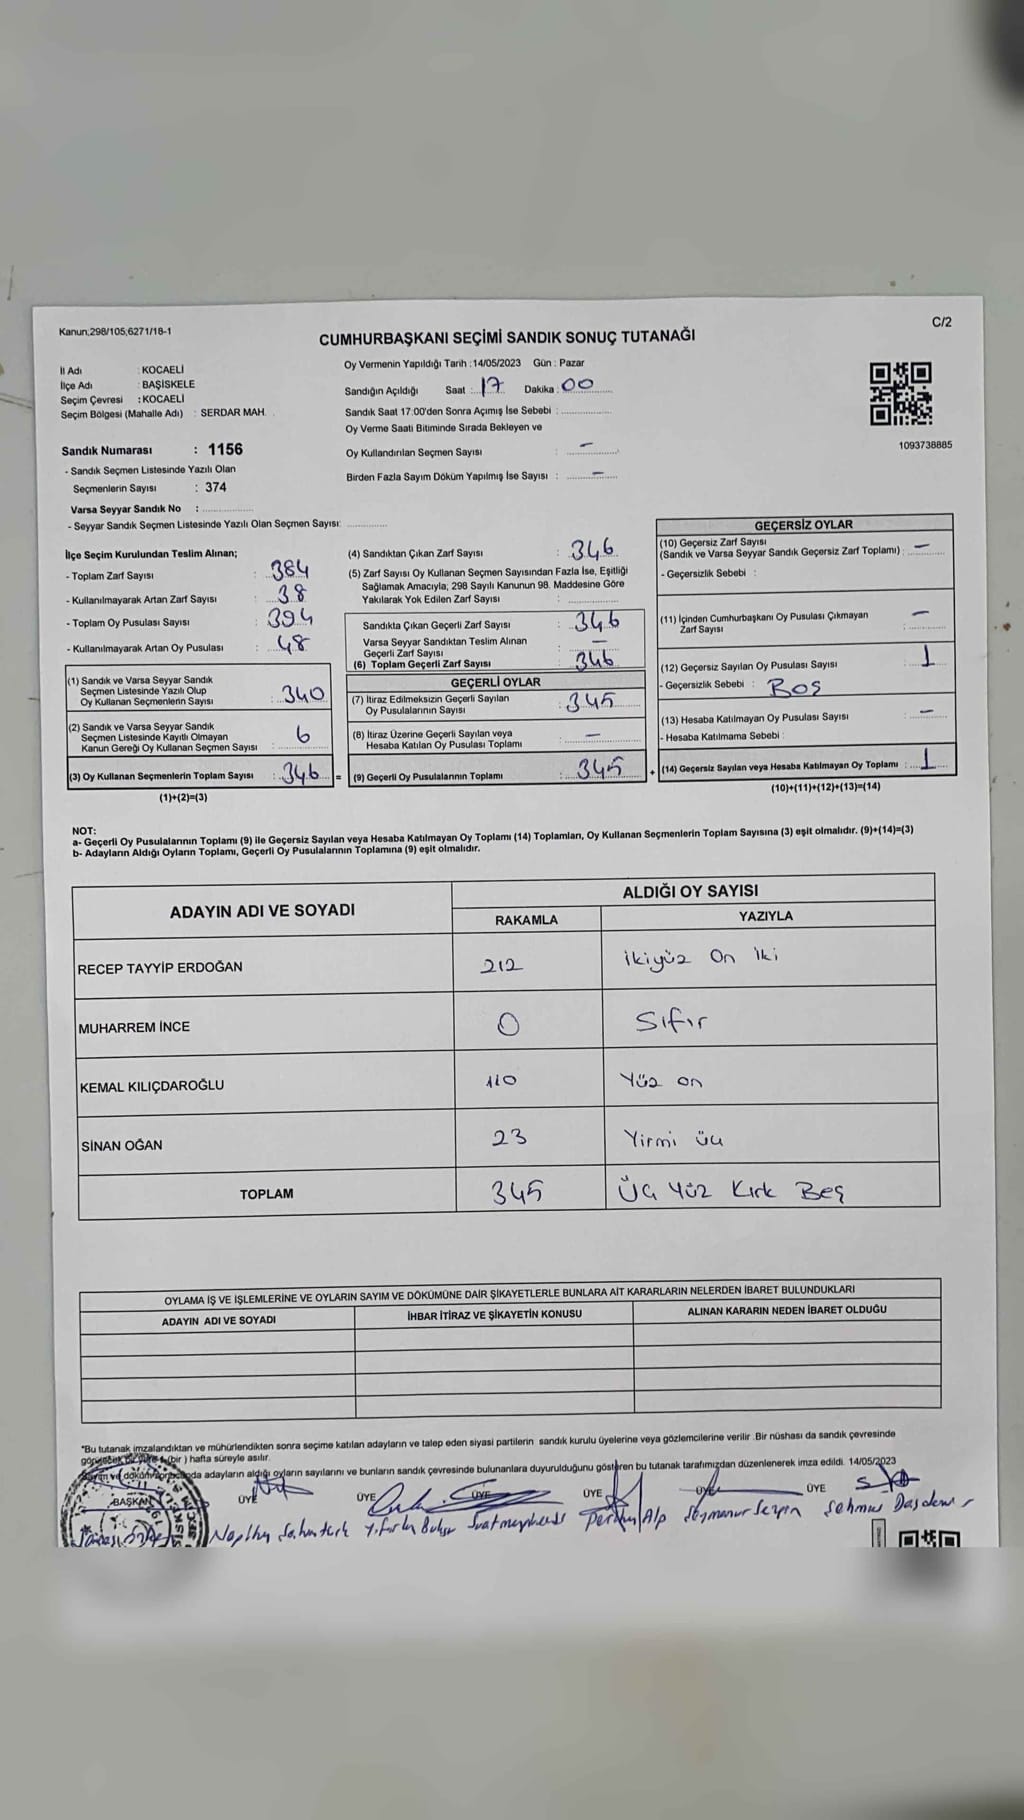 Kanun;298/105,6271/18-1
C/2
CUMHURBAŞKANI SEÇİMİ SANDIK SONUÇ TUTANAĞI
İl Adı : KOCAELİ
İlçe Adı : BAŞİSKELE
Seçim Çevresi : KOCAELİ
Seçim Bölgesi (Mahalle Adı) : SERDAR MAH.
Oy Vermenin Yapıldığı Tarih :14/05/2023 Gün : Pazar
Sandığın Açıldığı Saat : 17 Dakika : 00
Sandık Saat 17:00'den Sonra Açımış İse Sebebi :
Oy Verme Saati Bitiminde Sırada Bekleyen ve
Oy Kullandırılan Seçmen Sayısı : -
Birden Fazla Sayım Döküm Yapılmış İse Sayısı : -
1093738885
Sandık Numarası : 1156
- Sandık Seçmen Listesinde Yazılı Olan
Seçmenlerin Sayısı : 374
Varsa Seyyar Sandık No :
- Seyyar Sandık Seçmen Listesinde Yazılı Olan Seçmen Sayısı:
İlçe Seçim Kurulundan Teslim Alınan;
- Toplam Zarf Sayısı : 384
- Kullanılmayarak Artan Zarf Sayısı : 38
- Toplam Oy Pusulası Sayısı : 394
- Kullanılmayarak Artan Oy Pusulası : 48
(1) Sandık ve Varsa Seyyar Sandık
Seçmen Listesinde Yazılı Olup
Oy Kullanan Seçmenlerin Sayısı : 340
(2) Sandık ve Varsa Seyyar Sandık
Seçmen Listesinde Kayıtlı Olmayan
Kanun Gereği Oy Kullanan Seçmen Sayısı : 6
(3) Oy Kullanan Seçmenlerin Toplam Sayısı : 346 =
(1)+(2)=(3)
(4) Sandıktan Çıkan Zarf Sayısı : 346
(5) Zarf Sayısı Oy Kullanan Seçmen Sayısından Fazla İse, Eşitliği
Sağlamak Amacıyla; 298 Sayılı Kanunun 98. Maddesine Göre
Yakılarak Yok Edilen Zarf Sayısı :
Sandıkta Çıkan Geçerli Zarf Sayısı : 346
Varsa Seyyar Sandıktan Teslim Alınan
Geçerli Zarf Sayısı : -
(6) Toplam Geçerli Zarf Sayısı : 346
GEÇERLİ OYLAR
(7) İtiraz Edilmeksizin Geçerli Sayılan
Oy Pusulalarının Sayısı : 345
(8) İtiraz Üzerine Geçerli Sayılan veya
Hesaba Katılan Oy Pusulası Toplamı : -
(9) Geçerli Oy Pusulalarının Toplamı : 345 +
GEÇERSİZ OYLAR
(10) Geçersiz Zarf Sayısı
(Sandık ve Varsa Seyyar Sandık Geçersiz Zarf Toplamı) : -
- Geçersizlik Sebebi :
(11) İçinden Cumhurbaşkanı Oy Pusulası Çıkmayan
Zarf Sayısı : -
(12) Geçersiz Sayılan Oy Pusulası Sayısı : 1
- Geçersizlik Sebebi : Boş
(13) Hesaba Katılmayan Oy Pusulası Sayısı : -
- Hesaba Katılmama Sebebi :
(14) Geçersiz Sayılan veya Hesaba Katılmayan Oy Toplamı : 1
(10)+(11)+(12)+(13)=(14)
NOT:
a- Geçerli Oy Pusulalarının Toplamı (9) ile Geçersiz Sayılan veya Hesaba Katılmayan Oy Toplamı (14) Toplamları, Oy Kullanan Seçmenlerin Toplam Sayısına (3) eşit olmalıdır. (9)+(14)=(3)
b- Adayların Aldığı Oyların Toplamı, Geçerli Oy Pusulalarının Toplamına (9) eşit olmalıdır.
ADAYIN ADI VE SOYADI ALDIĞI OY SAYISI
RAKAMLA YAZIYLA
RECEP TAYYİP ERDOĞAN 212 İkiyüz On İki
MUHARREM İNCE 0 Sıfır
KEMAL KILIÇDAROĞLU 110 Yüz on
SİNAN OĞAN 23 Yirmi üç
TOPLAM 345 Üç Yüz Kırk Beş
OYLAMA İŞ VE İŞLEMLERİNE VE OYLARIN SAYIM VE DÖKÜMÜNE DAİR ŞİKAYETLERLE BUNLARA AİT KARARLARIN NELERDEN İBARET BULUNDUKLARI
ADAYIN ADI VE SOYADI İHBAR İTİRAZ VE ŞİKAYETİN KONUSU ALINAN KARARIN NEDEN İBARET OLDUĞU
*Bu tutanak imzalandıktan ve mühürlendikten sonra seçime katılan adayların ve talep eden siyasi partilerin sandık kurulu üyelerine veya gözlemcilerine verilir .Bir nüshası da sandık çevresinde
(bir ) hafta süreyle asılır.
adayların aldığı oyların sayılarını ve bunların sandık çevresinde bulunanlara duyurulduğunu gösteren bu tutanak tarafımızdan düzenlenerek imza edildi. 14/05/2023
BAŞKAN ÜYE ÜYE ÜYE ÜYE ÜYE ÜYE
Alp